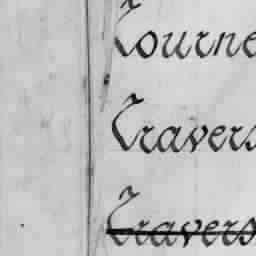 Tourne
Travers
Travers